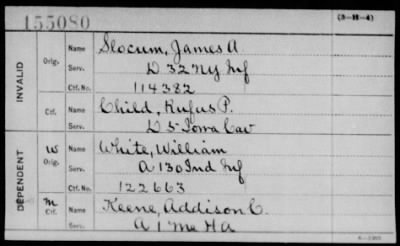 155080
(3-H-4)
INVALID
Orig.
Name Slocum, James A.
Serv. D 32 NY Inf
Ctf. No. 114382
Ctf.
Name Child, Rufus P.
Serv. D 5 Iowa Cav
DEPENDENT
W
Orig.
Name White, William
Serv. A 130 Ind Inf
Ctf. No. 122663
M
Ctf.
Name Keene, Addison C.
Serv. A 1 Me H A